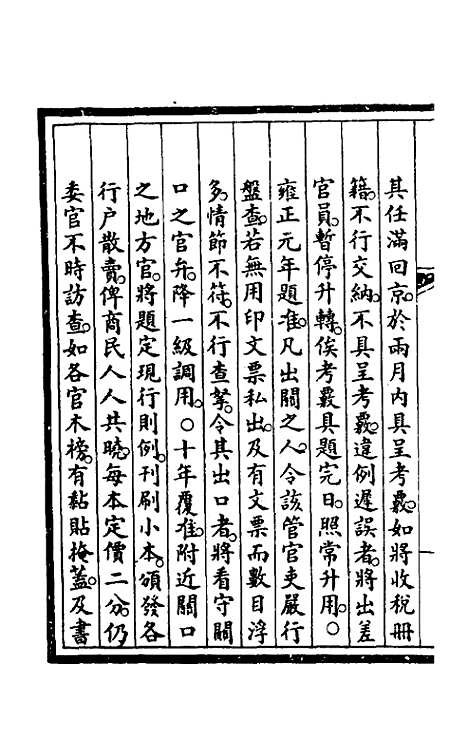 其任滿回京。於兩月內具呈考覈。如將收稅冊
籍。不行交納。不具呈考覈。違例遲誤者。將出差
官員。暫停升轉。俟考覈具題完日。照常升用。○
雍正元年題准。凡出關之人。令該管官吏嚴行
盤查。若無用印文票私出。及有文票而數目浮
多。情節不符。不行查拏。令其出口者。將看守關
口之官弁。降一級調用。○十年覆准。附近關口
之地方官。將題定現行則例。刊刷小本。頒發各
行户散賣。俾商民人人共曉。每本定價二分。仍
委官不時訪查。如各官木榜。有黏貼掩蓋。及書